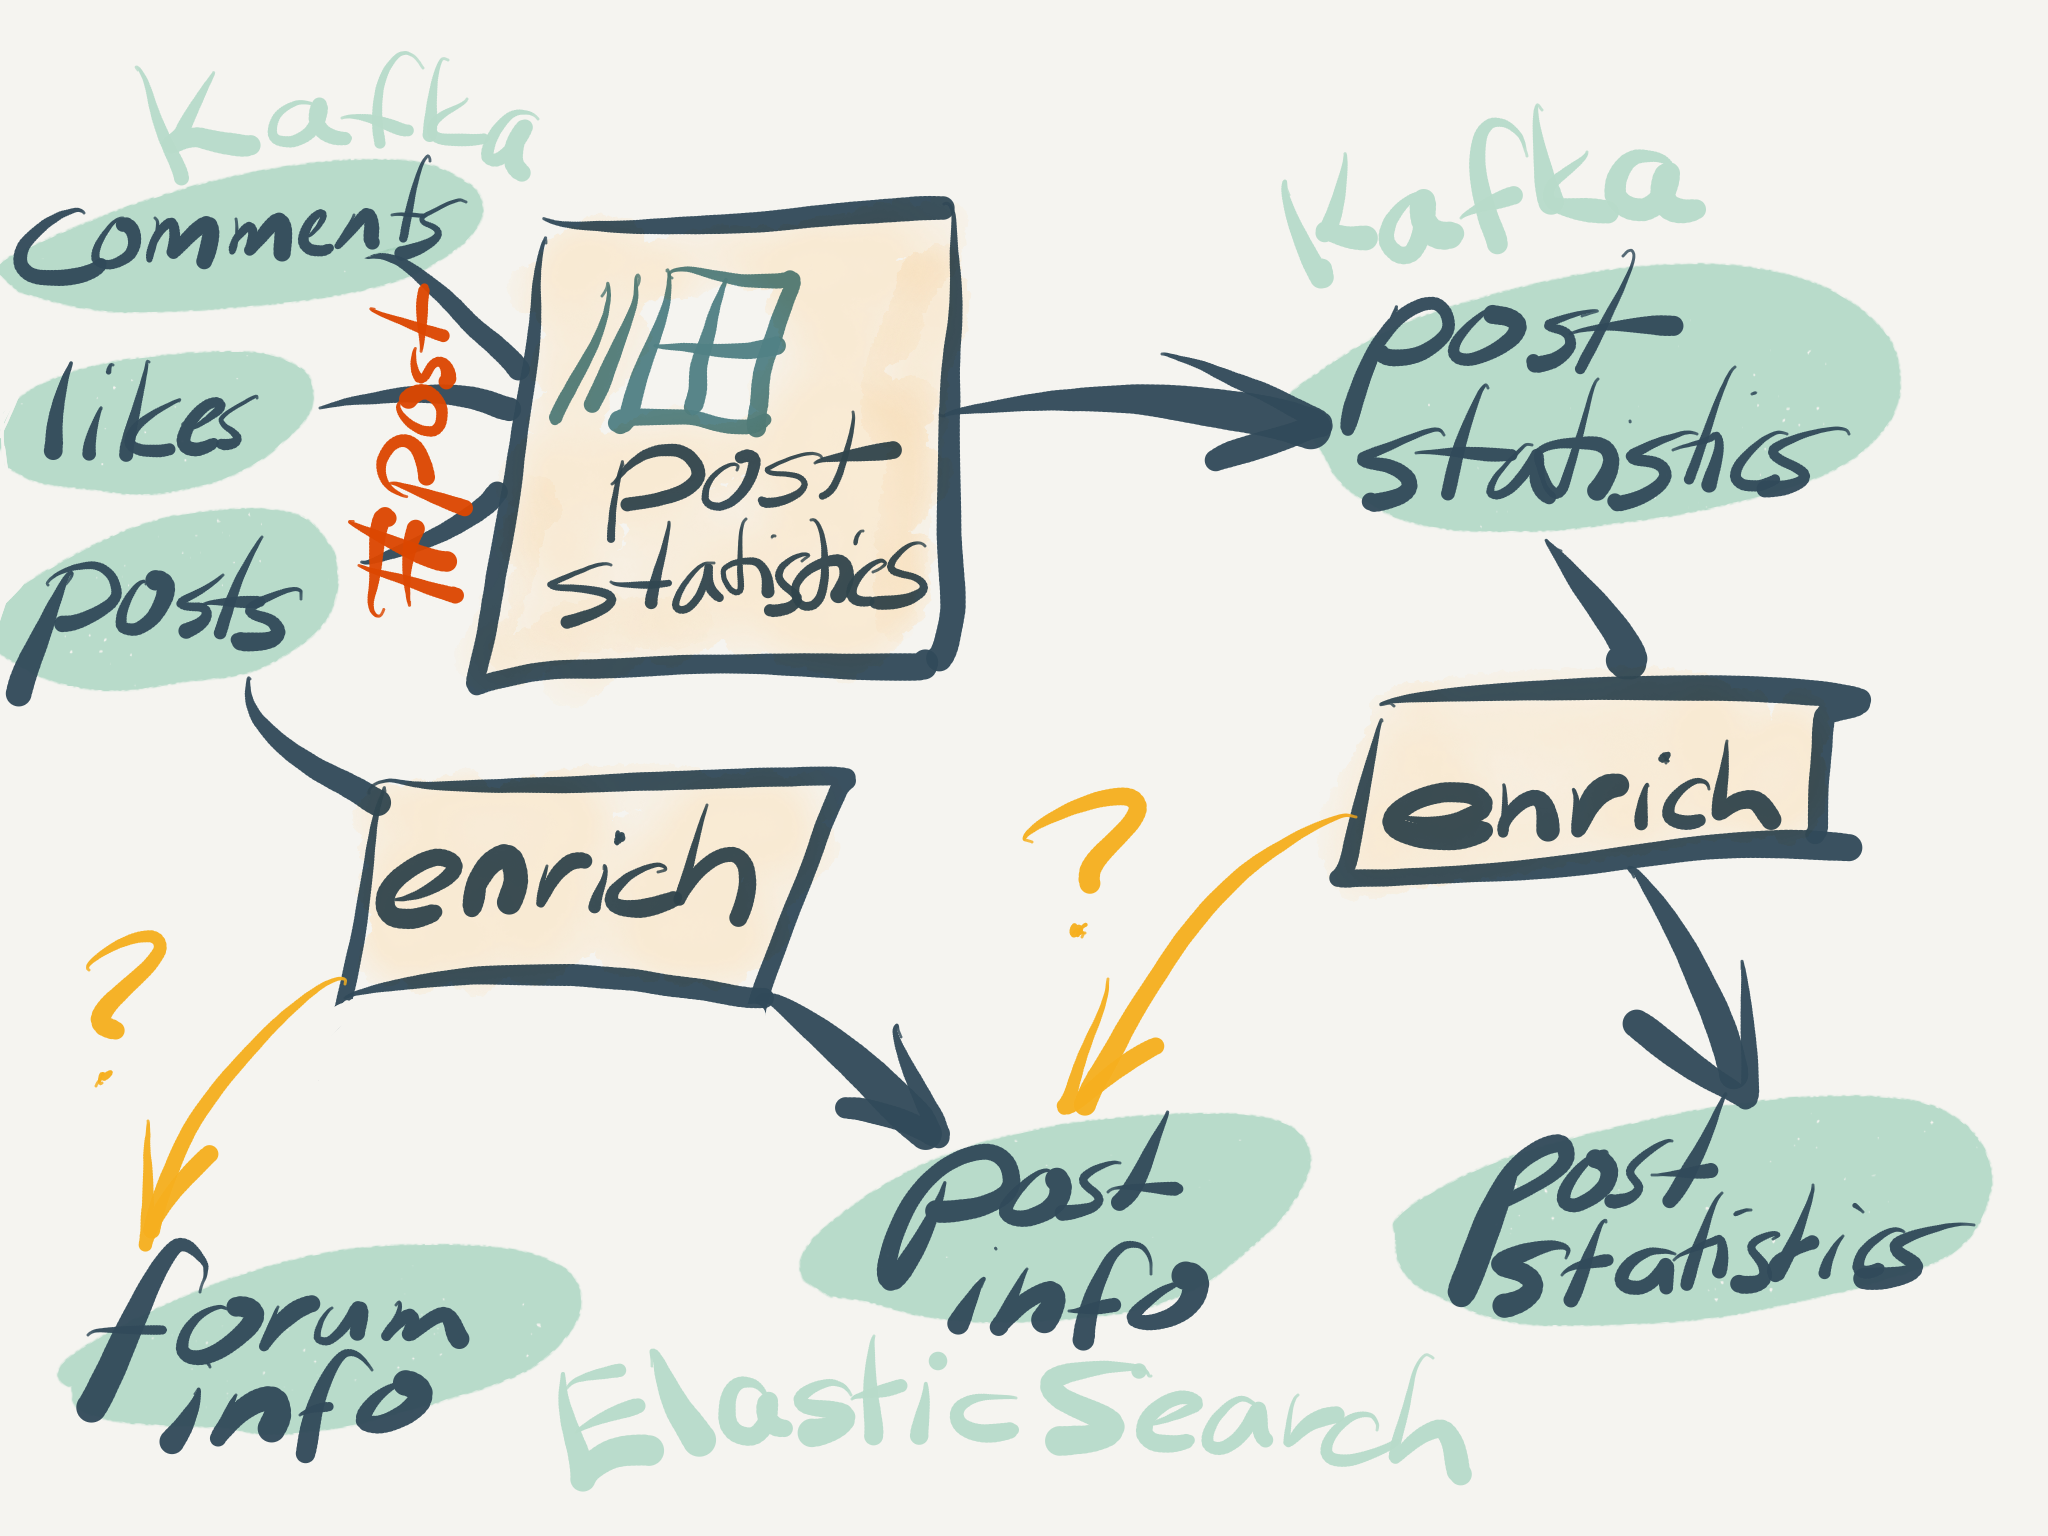 Kafka
comments
likes
posts
#post
post
statistics
Kafka
post
statistics
enrich
?
enrich
?
forum
info
post
info
post
statistics
ElasticSearch